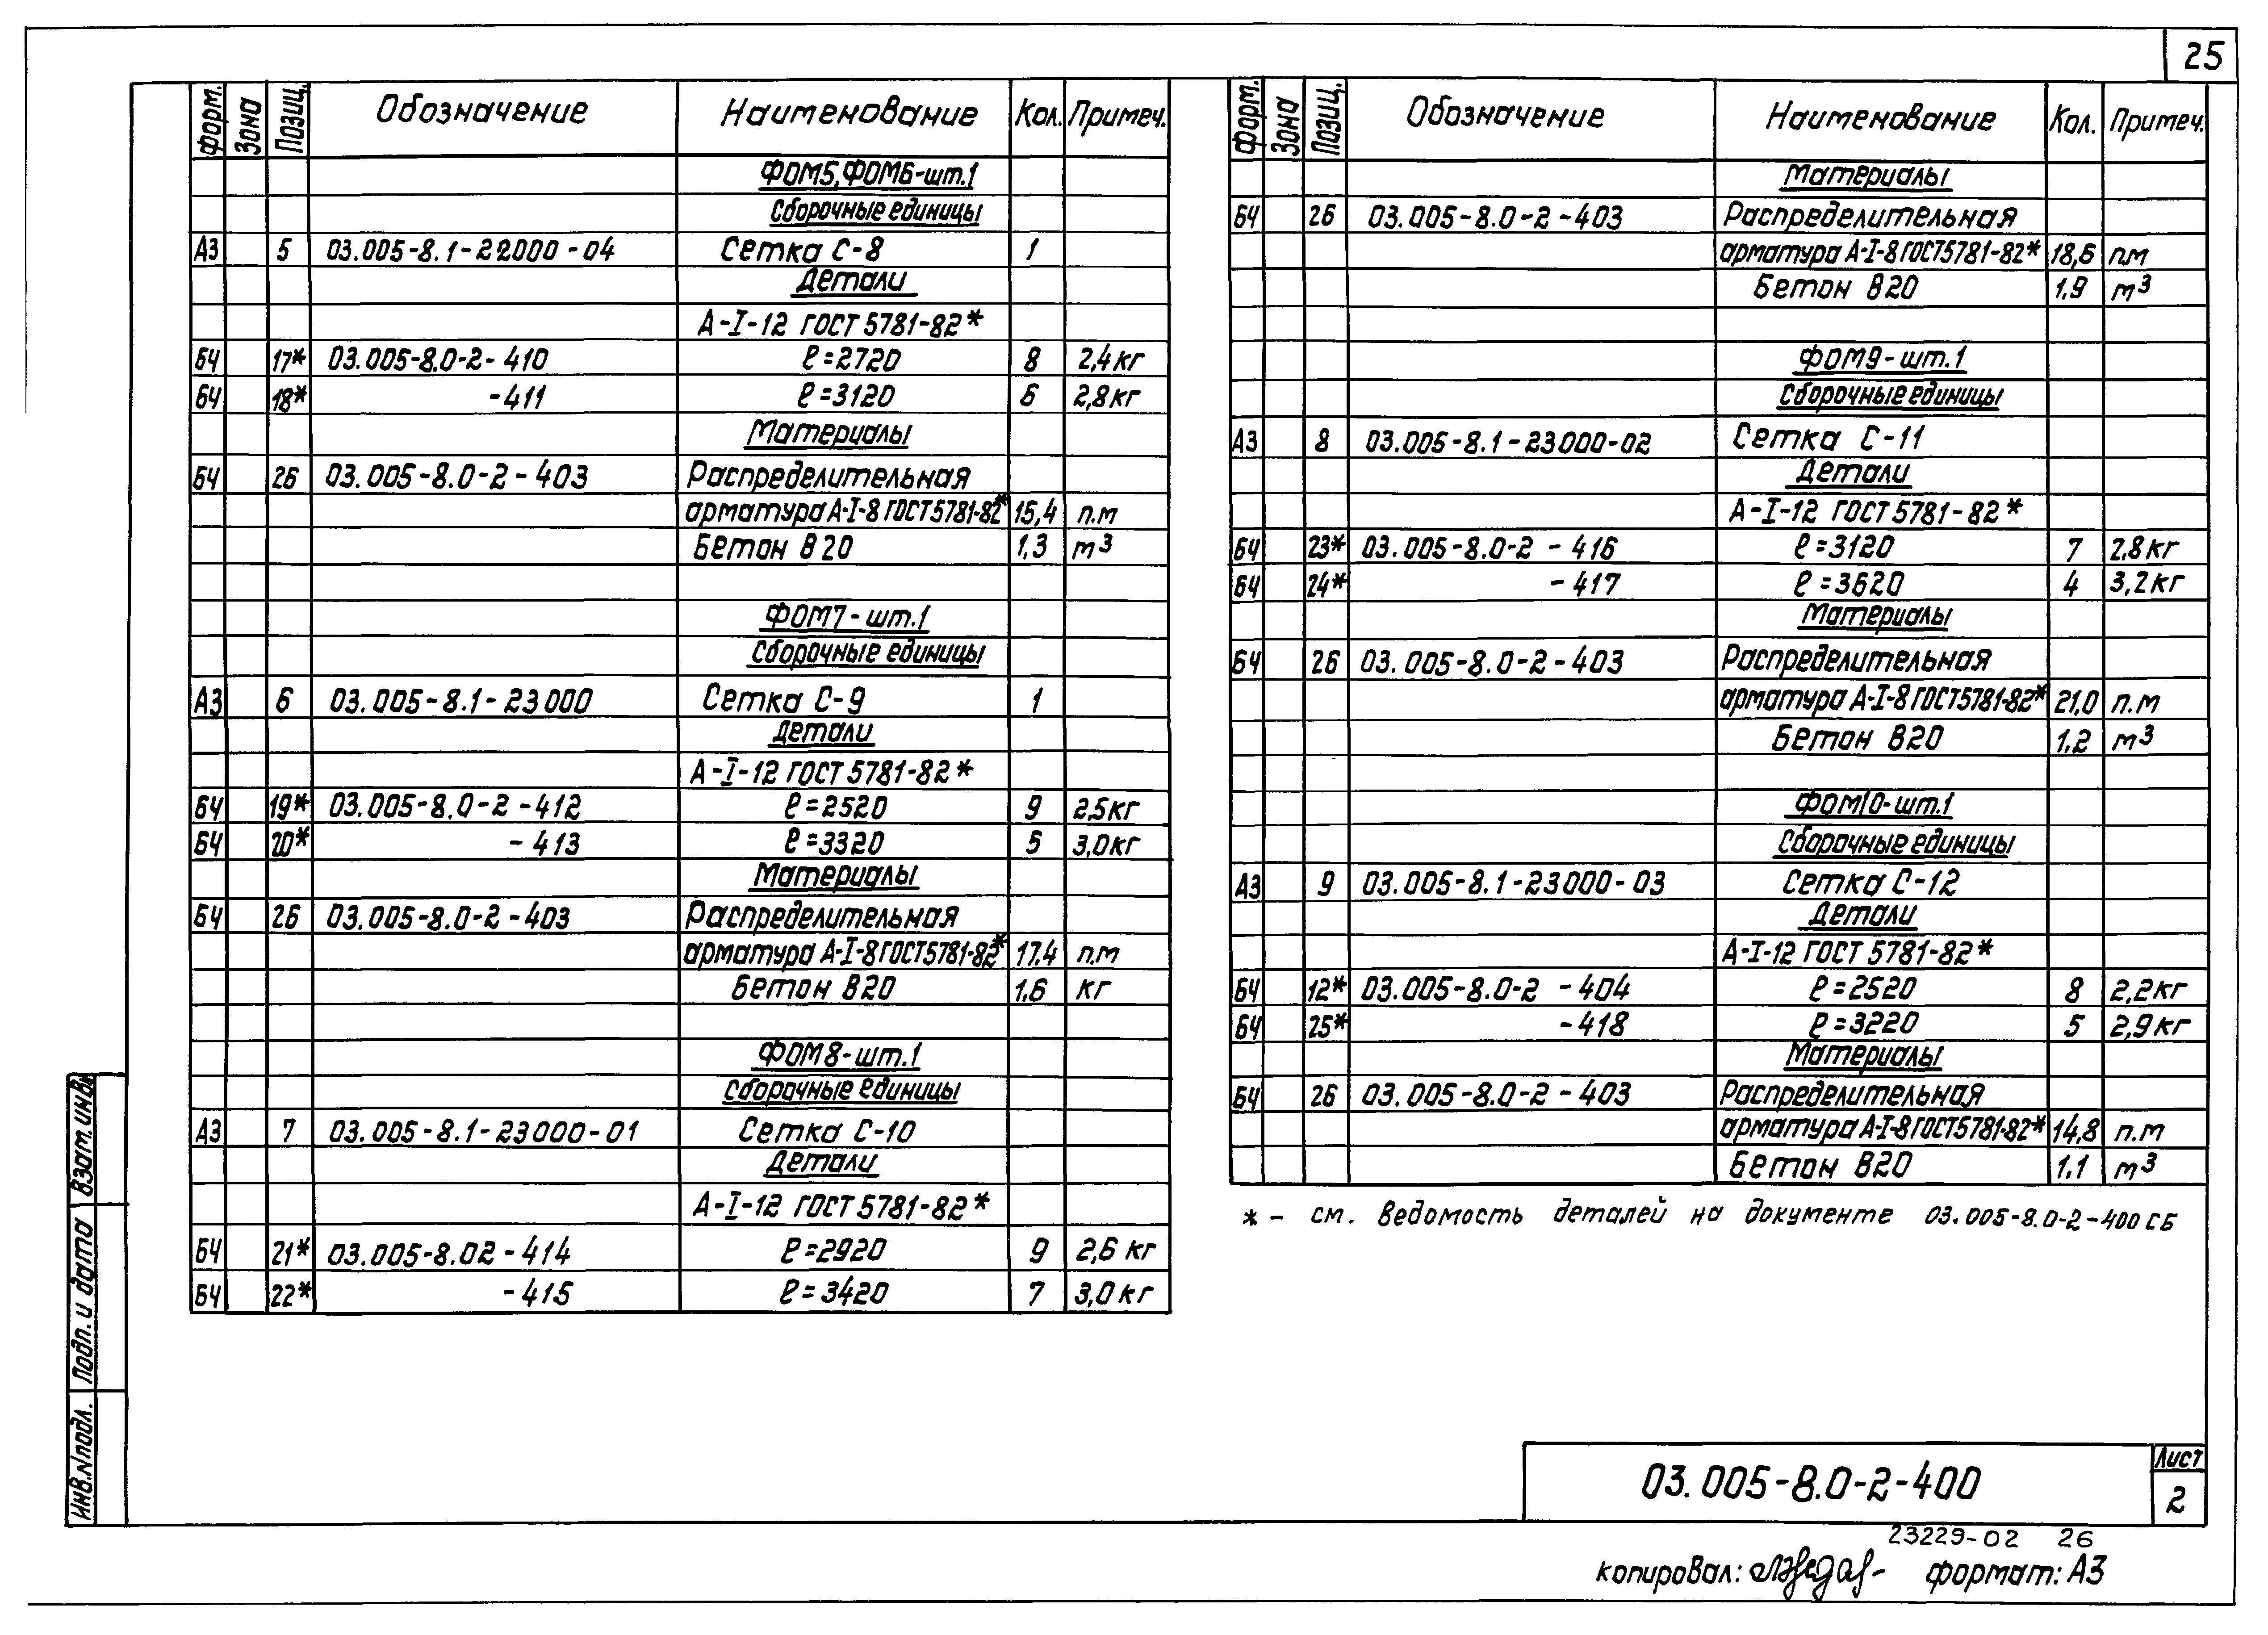 25
Форм. Зона Позиц. Обозначение Наименование Кол. Примеч.
ФОМ5, ФОМ6-шт.1
Сборочные единицы
А3 5 03.005-8.1-22000-04 Сетка С-8 1
Детали
А-I-12 ГОСТ 5781-82*
БЧ 17* 03.005-8.0-2-410 ℓ=2720 8 2,4кг
БЧ 18* -411 ℓ=3120 6 2,8кг
Материалы
БЧ 26 03.005-8.0-2-403 Распределительная
арматура А-I-8 ГОСТ5781-82* 15,4 п.м
Бетон В20 1,3 м3
ФОМ7-шт.1
Сборочные единицы
А3 6 03.005-8.1-23000 Сетка С-9 1
Детали
А-I-12 ГОСТ 5781-82*
БЧ 19* 03.005-8.0-2-412 ℓ=2520 9 2,5кг
БЧ 20* -413 ℓ=3320 5 3,0кг
Материалы
БЧ 26 03.005-8.0-2-403 Распределительная
арматура А-I-8 ГОСТ5781-82* 17.4 п.м
Бетон В20 1.6 кг
ФОМ8-шт.1
Сборочные единицы
А3 7 03.005-8.1-23000-01 Сетка С-10
Детали
А-I-12 ГОСТ 5781-82*
БЧ 21* 03.005-8.02-414 ℓ=2920 9 2,6 кг
БЧ 22* -415 ℓ=3420 7 3,0 кг
Форм. Зона Позиц. Обозначение Наименование Кол. Примеч.
Материалы
БЧ 26 03.005-8.0-2-403 Распределительная
арматура А-I-8 ГОСТ5781-82* 18,6 п.м
Бетон В20 1,9 м3
ФОМ9-шт.1
Сборочные единицы
А3 8 03.005-8.1-23000-02 Сетка С-11
Детали
А-I-12 ГОСТ 5781-82*
БЧ 23* 03.005-8.0-2-416 ℓ=3120 7 2,8кг
БЧ 24* -417 ℓ=3620 4 3,2кг
Материалы
БЧ 26 03.005-8.0-2-403 Распределительная
арматура А-I-8 ГОСТ5781-82* 21,0 п.м
Бетон В20 1,2 м3
ФОМ10-шт.1
Сборочные единицы
А3 9 03.005-8.1-23000-03 Сетка С-12
Детали
А-I-12 ГОСТ 5781-82*
БЧ 12* 03.005-8.0-2-404 ℓ=2520 8 2,2кг
БЧ 25* -418 ℓ=3220 5 2,9кг
Материалы
БЧ 26 03.005-8.0-2-403 Распределительная
арматура А-I-8 ГОСТ5781-82* 14,8 п.м
Бетон В20 1,1 м3
* - см. Ведомость деталей на документе 03.005-8.0-2-400СБ
Взам. инв.
Подп. и дата
Инв.N подл.
03.005-8.0-2-400
Лист
2
23229-02 26
копировал: формат: А3